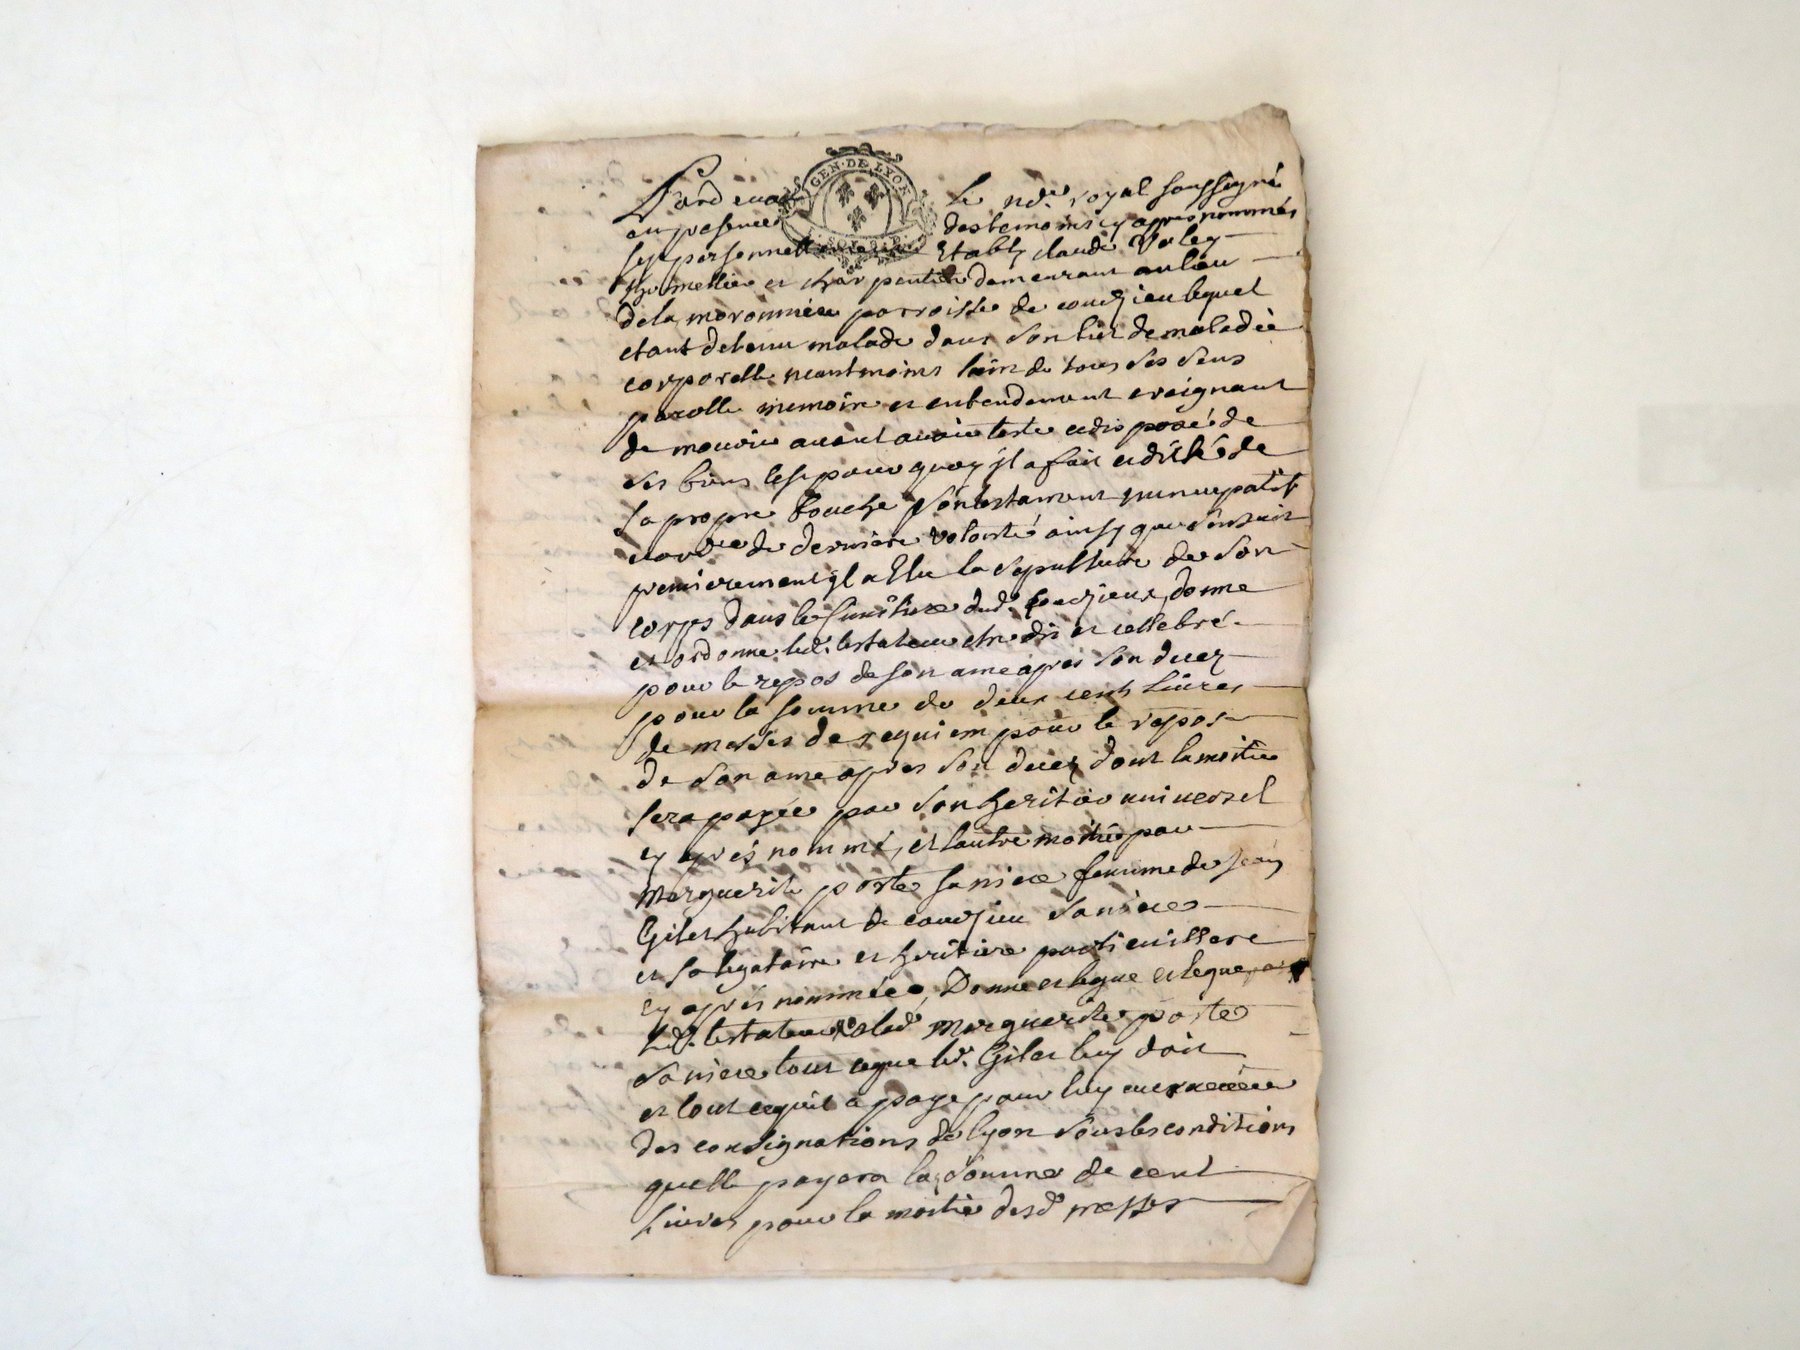 GEN. DE LYON
Pardevant Le no.re royal soussigné
en presence des temoins cy apres nommés
fut personnellement Etably claude Valey
thomellier et charpentier demeurant au lieu
de la moronniere parroisse de courzieu lequel
etant detenu malade dans son lict de maladie
corporelle neantmoins sain de tous ses sens
parolle memoire et entendement craignant
de mourir avant avoir testé et disposé de
ses biens c'est pourquoy jl a fait et dicté de
sa propre bouche son testament nuncupatif
et ord.re de derniere volonté ainsy que s'ensuit
premierement jl a Elu la sepulture de son
corps dans le simitiere dud. courzieux, donne
et ordonne led. testateur etre dit et cellebré
pour le repos de son ame apres son decez
pour la somme de deux cents Livres
de messes de requiem pour le repos
de son ame apres son decez dont la moitie
sera payée par son heritier universel
cy aprés nommé, et l'autre moitié par
Marguerite porte sa niece femme de Jean
Giles habitant de courzieu sa niece
et sa legataire et heritiere particuillere
cy aprés nommée, Donne et legue et legue
Led. testateur a lad. Marguerite porte
sa niece tout ce que led. Giles luy doit
et tout ce qu'il a payé pour luy au
des consignations de lyon sous les conditions
quelle payera la somme de cent
Livres pour la moitie desd. messes